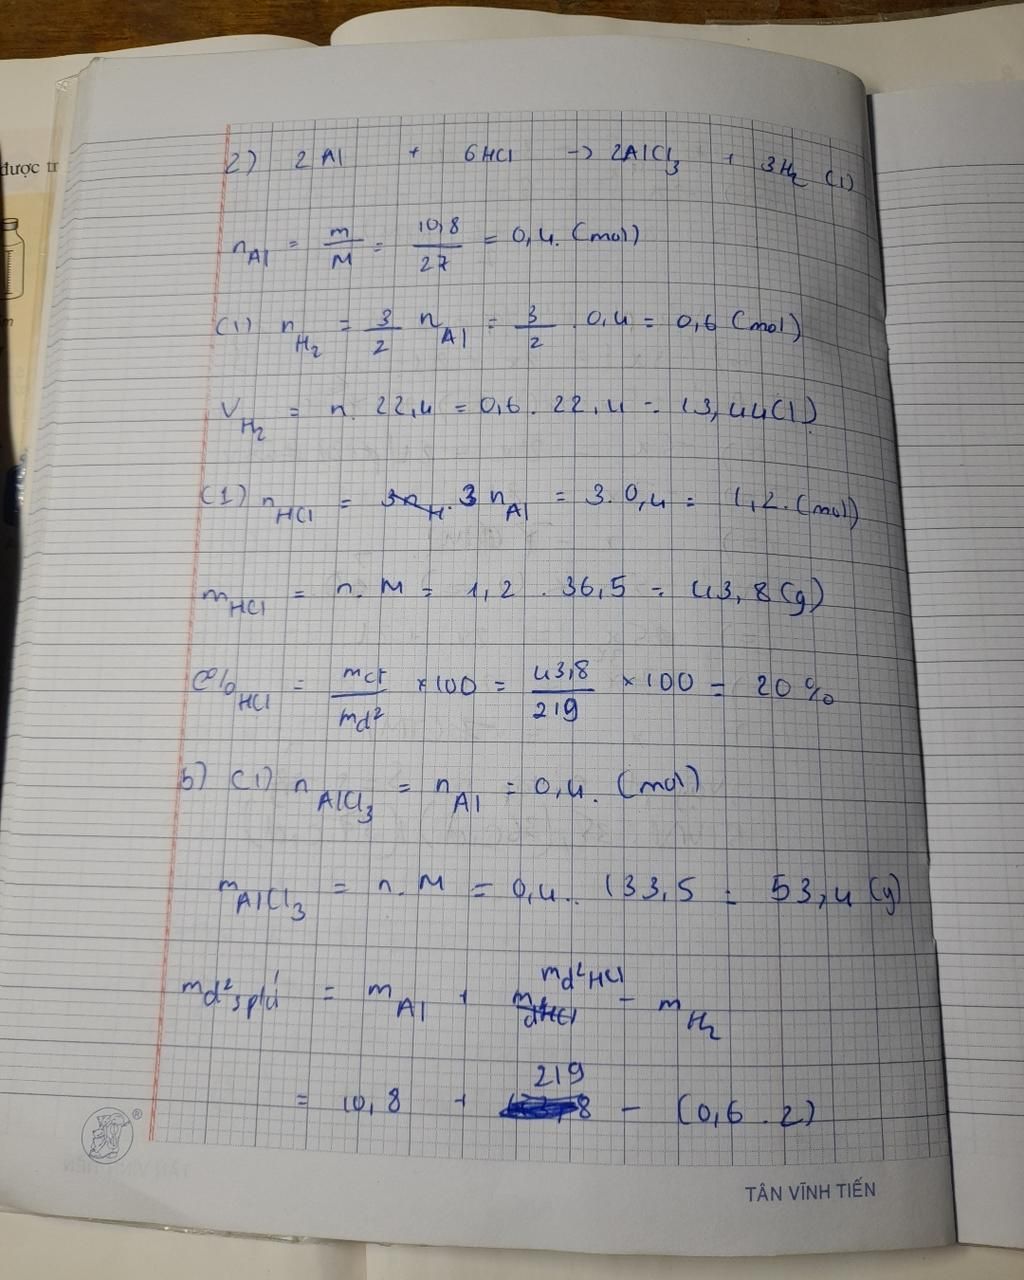 được tr
2) 2Al + 6HCl -> 2AlCl₃ + 3H₂ (1)
n_Al = m/M = 10,8/27 = 0,4. (mol)
(1) n_H₂ = 3/2 n_Al = 3/2 . 0,4 = 0,6 (mol)
V_H₂ = n. 22,4 = 0,6 . 22,4 = 13,44(l)
(1) n_HCl = 3 n_Al = 3. 0,4 = 1,2. (mol)
m_HCl = n. M = 1,2 . 36,5 = 43,8 (g)
C%_HCl = mct/md² ×100 = 43,8/219 ×100 = 20%
b) (1) n_AlCl₃ = n_Al = 0,4. (mol)
m_AlCl₃ = n. M = 0,4. 133,5 = 53,4 (g)
md² spứ = m_Al + md²HCl - m_H₂
= 10,8 + 219 - (0,6 . 2)
®
TÂN VĨNH TIẾN